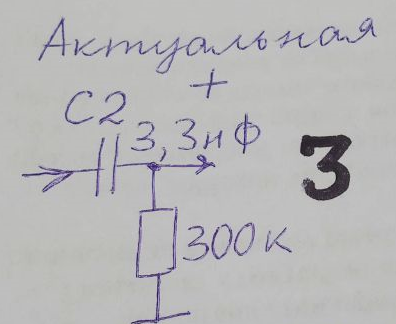 Актуальная
+
C2
3,3нф
3
300к